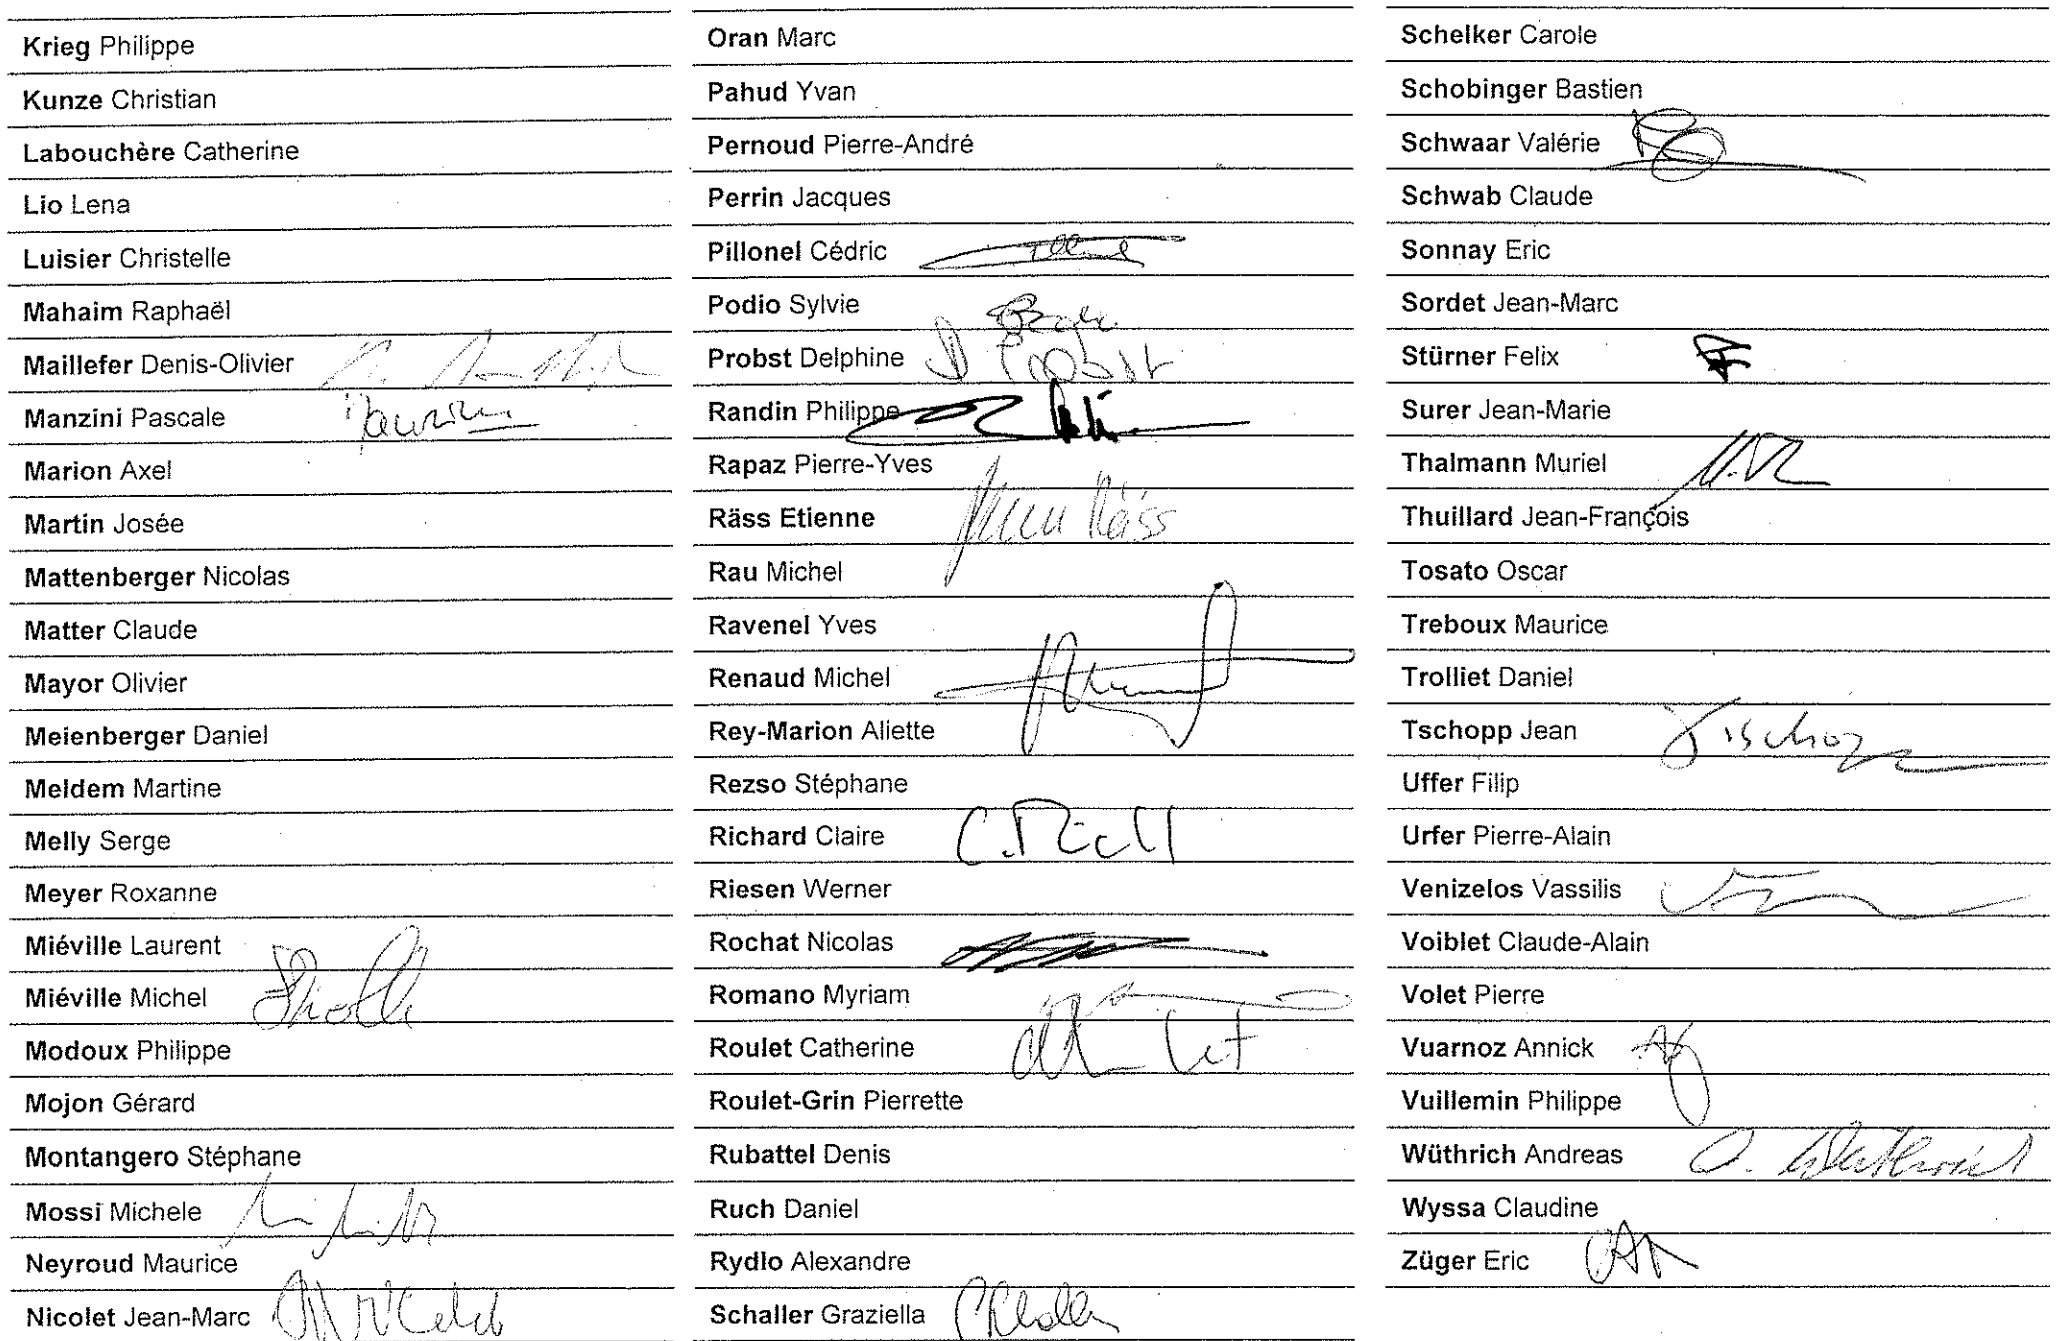 Krieg Philippe
Kunze Christian
Labouchère Catherine
Lio Lena
Luisier Christelle
Mahaim Raphaël
Maillefer Denis-Olivier
Manzini Pascale
Marion Axel
Martin Josée
Mattenberger Nicolas
Matter Claude
Mayor Olivier
Meienberger Daniel
Meldem Martine
Melly Serge
Meyer Roxanne
Miéville Laurent
Miéville Michel
Modoux Philippe
Mojon Gérard
Montangero Stéphane
Mossi Michele
Neyroud Maurice
Nicolet Jean-Marc
Oran Marc
Pahud Yvan
Pernoud Pierre-André
Perrin Jacques
Pillonel Cédric
Podio Sylvie
Probst Delphine D Probst
Randin Philippe
Rapaz Pierre-Yves
Räss Etienne Räss
Rau Michel
Ravenel Yves
Renaud Michel
Rey-Marion Aliette
Rezso Stéphane
Richard Claire
Riesen Werner
Rochat Nicolas
Romano Myriam
Roulet Catherine
Roulet-Grin Pierrette
Rubattel Denis
Ruch Daniel
Rydlo Alexandre
Schaller Graziella
Schelker Carole
Schobinger Bastien
Schwaar Valérie
Schwab Claude
Sonnay Eric
Sordet Jean-Marc
Stürner Felix
Surer Jean-Marie
Thalmann Muriel
Thuillard Jean-François
Tosato Oscar
Treboux Maurice
Trolliet Daniel
Tschopp Jean
Uffer Filip
Urfer Pierre-Alain
Venizelos Vassilis
Voiblet Claude-Alain
Volet Pierre
Vuarnoz Annick
Vuillemin Philippe
Wüthrich Andreas
Wyssa Claudine
Züger Eric